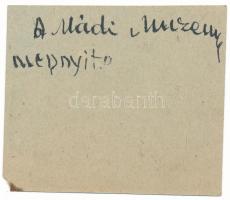 A Mádi Muzeum
megnyitó
darabanth